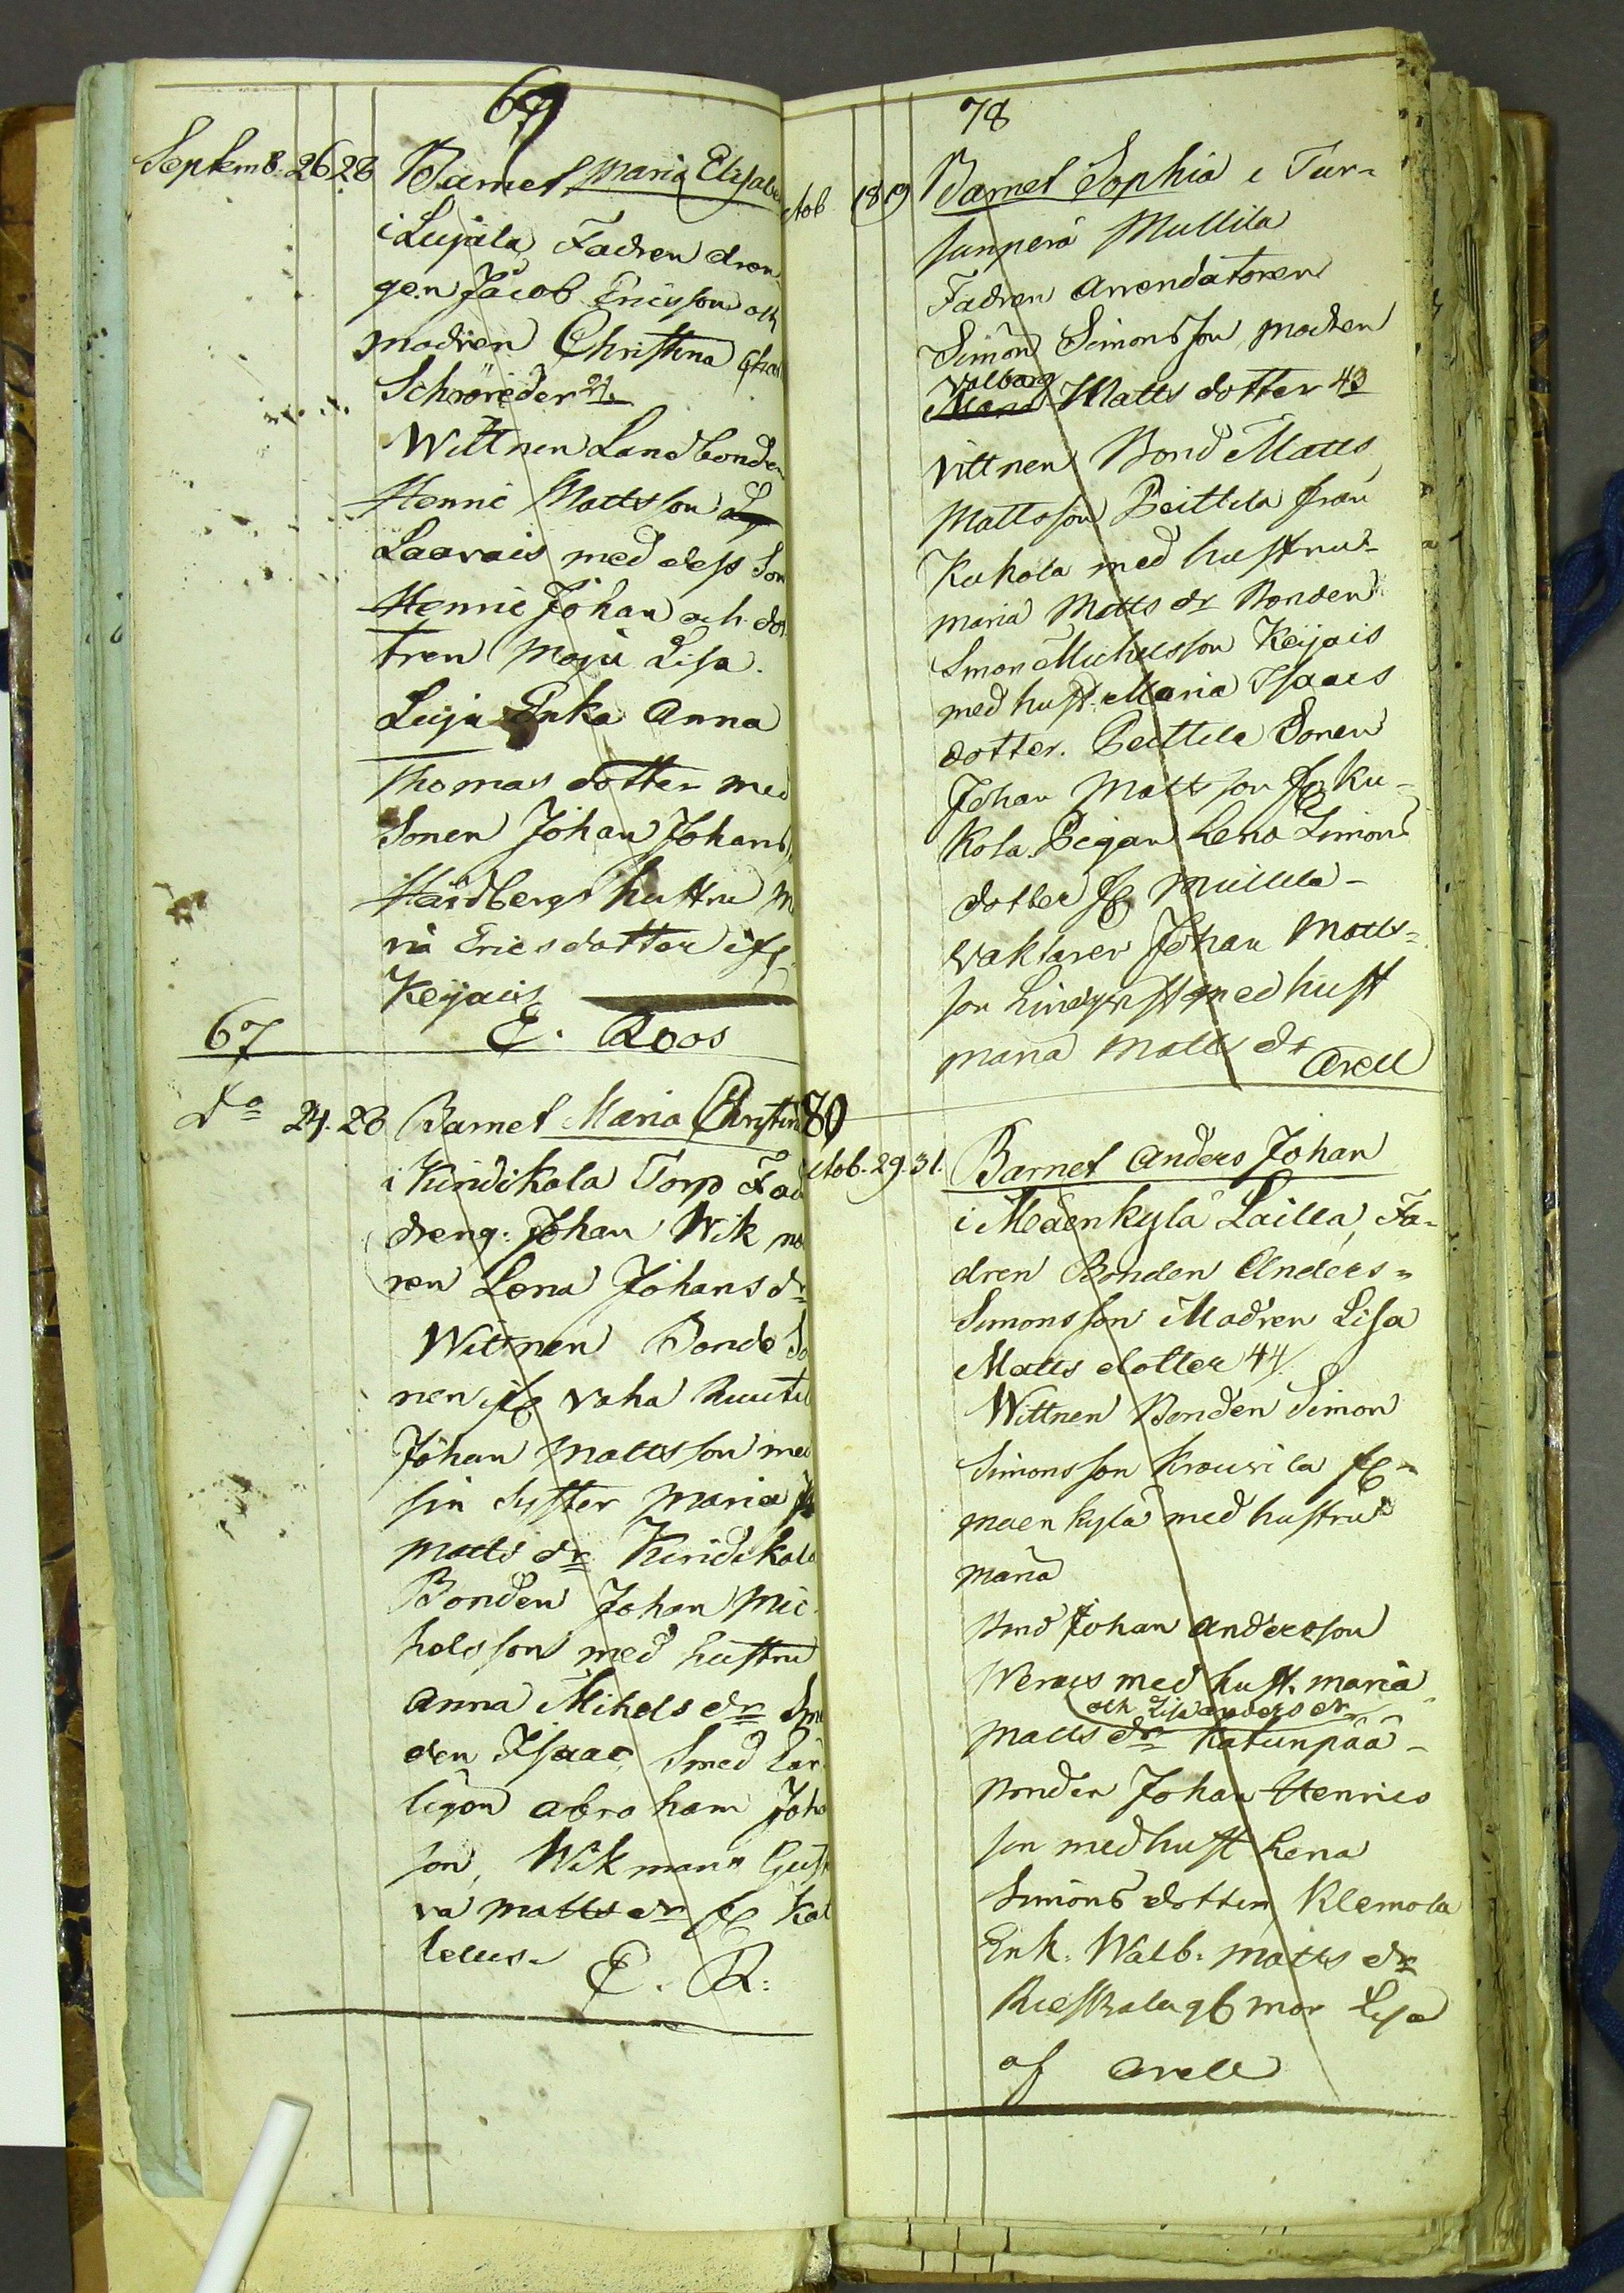 69
Septemb. 26 28 Barnet Maria Elisabe
i Luijala, Fadren dren
gen Jacob Ericsson och
modren Christina Char
Schröreder 21.
Wittnen Landbonden
Henric Mattsson
Laavais med dess Son
Henric Johan och dot
tren Maja Lisa.
Luja Enka Anna
Thomas dotter med
Sonen Johan Johans
Hardbergs hustru M
ria Ericsdotter if
Keijais
E. Roos
67
Do 24. 28 Barnet Maria Christin
i Kiridikala Torp Fad
dreng: Johan Wik mo
ren Lena Johans dr
Wittnen Bonde So
nen if Vaha Ruuti
Johan Mattsson med
sin Syster Maria
Matts dr Kiridikala
Bonden Johan Mic
helsson med hustru
Anna Mihels dr Sme
den Isaac, Smed Lär
ligon Abraham Joha
son, Wikmans Gust
va Matts dr Kal
leeus. E. R:
78
ctob 18 19 Barnet Sophia i Tur-
sunperä Mullila
Fadren Arrendatoren
Simon Simonsson, modren
Valborg
Maria Matts dotter 43
Vittnen Bond Matts
Mattsson Peittila från
Kukola med hustru
Maria Matts dr Bonden
Simon Michelsson Keijais
med hust. Maria Isaacs
dotter. Peittila Sonen
Johan Mattsson fr Ku-
kola. Pigan Lena Simons
dotter fr Mullila-
vaktaren Johan Matts-
son Lindqvist med hust
Maria Matts dr Arell
80
ctob. 29. 31. Barnet Anders Johan
i Maenkylä Lailla, Fa-
dren Bonden Anders-
Simonsson Madren Lisa
Matts dotter 44.
Wittnen Bonden Simon
Simonsson Krouvila fr-
maenkylä med hustru
Maria
Bond Johan Andersson
Weraes med hust. Maria
och Lisa Anders dr
Matts dr Katunpää-
Bonden Johan Henrics
son med hust Lena
Simons dotter, Klemola
Enk. Walb. Matts dr
mor Lisa
af Arell